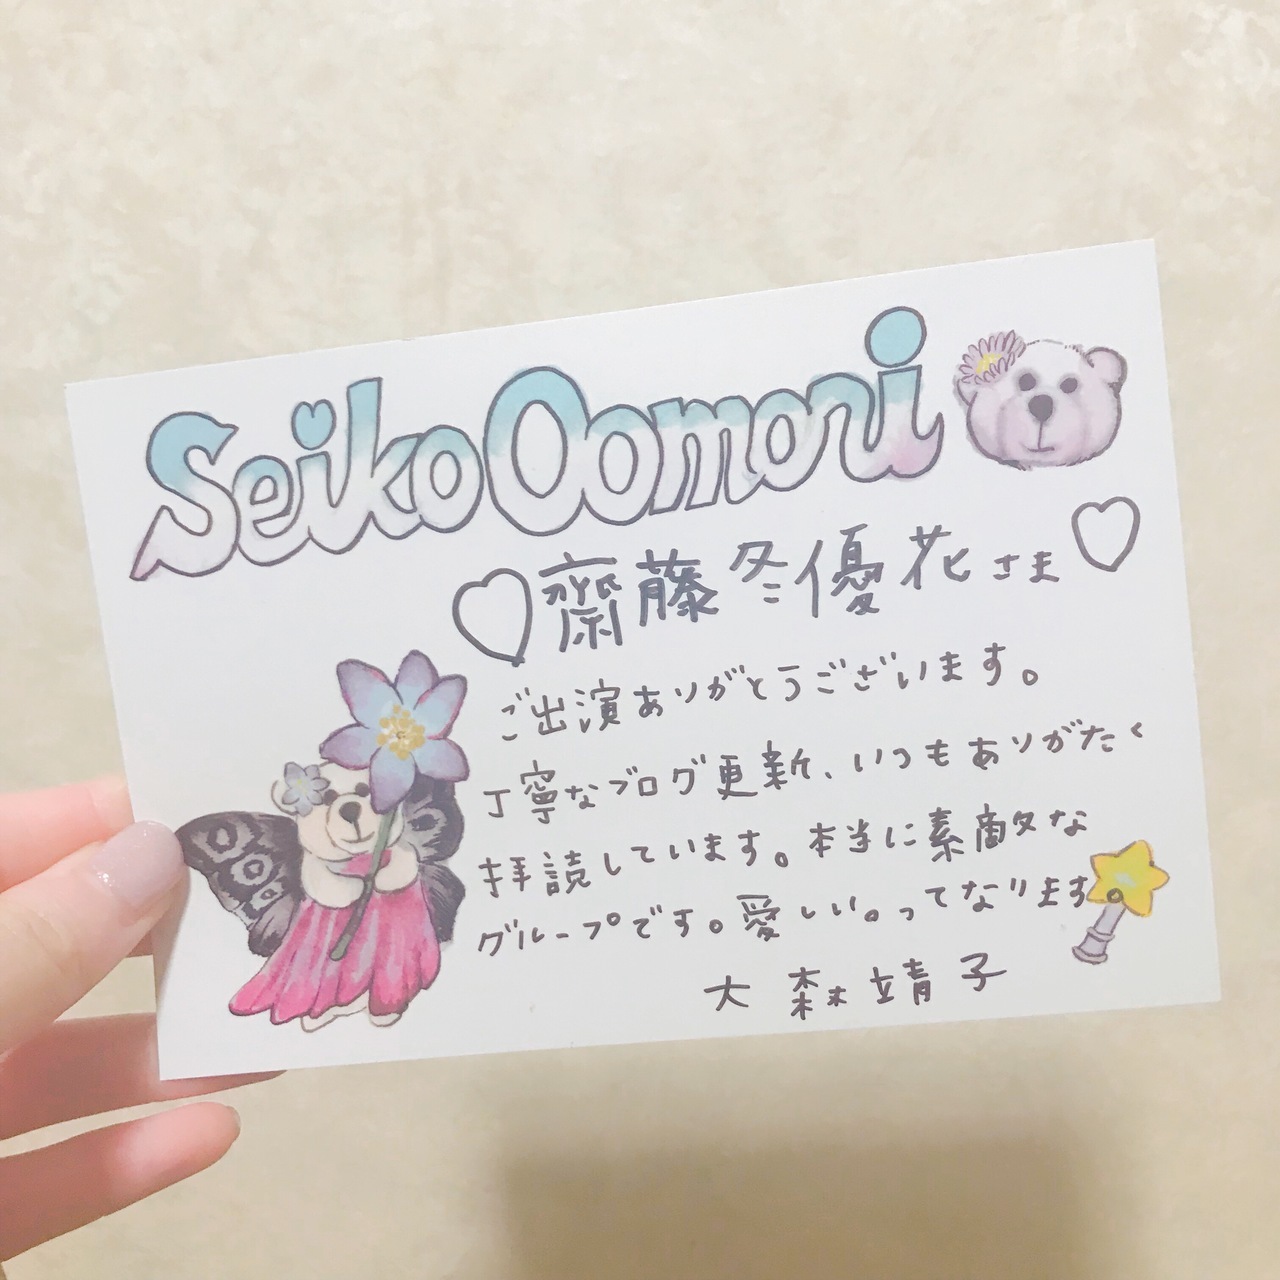 Seiko Oomori
♡齋藤冬優花さま♡
ご出演ありがとうございます。
丁寧なブログ更新、いつもありがたく
拝読しています。本当に素敵な
グループです。愛しい。ってなります。
大森靖子